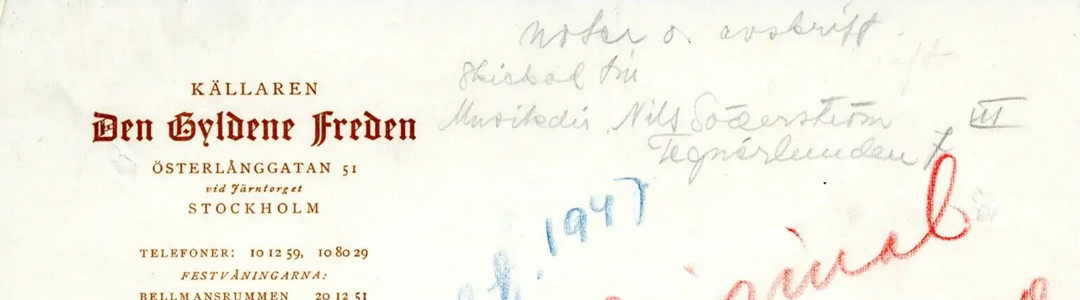 noter o. avskrift
skickad till
Musikdir. Nils Söderström III
Tegnérlunden 7
KÄLLAREN
Den Gyldene Freden
ÖSTERLÅNGGATAN 51
vid Järntorget
STOCKHOLM
TELEFONER: 10 12 59, 10 80 29
FESTVÅNINGARNA:
BELLMANSRUMMEN 20 12 51
1947